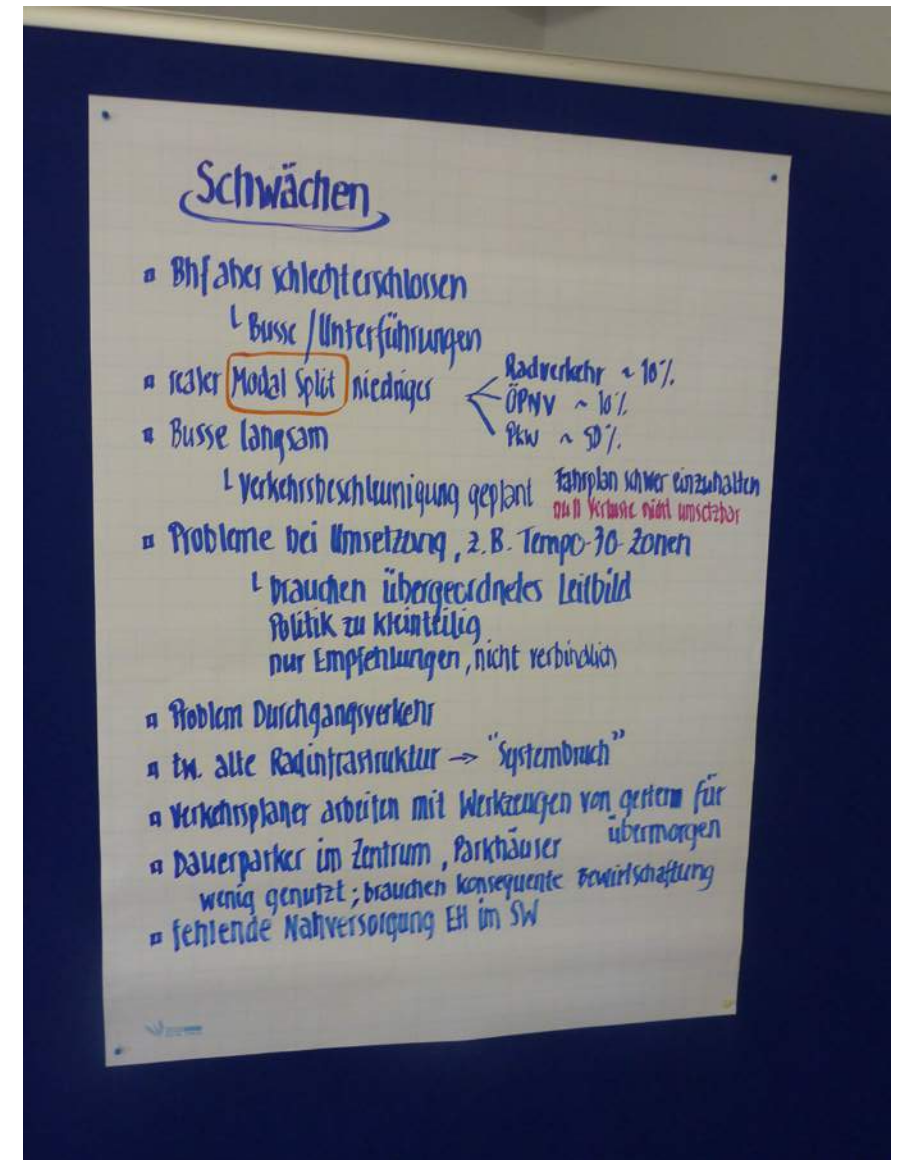 Schwächen
▫ Bhf aber schlecht erschlossen
└ Busse / Unterführungen
▫ realer Modal Split niedriger
Radverkehr ~ 10%
ÖPNV ~ 10%
Pkw ~ 50%
▫ Busse langsam
└ Verkehrsbeschleunigung geplant
Fahrplan schwer einzuhalten
Verluste nicht umsetzbar
▫ Probleme bei Umsetzung, z.B. Tempo-30-Zonen
└ brauchen übergeordnetes Leitbild
Politik zu kleinteilig
nur Empfehlungen, nicht verbindlich
▫ Problem Durchgangsverkehr
▫ tw. alte Radinfrastruktur → "Systembruch"
▫ Verkehrsplaner arbeiten mit Werkzeugen von gestern für
übermorgen
▫ Dauerparker im Zentrum, Parkhäuser
wenig genutzt; brauchen konsequente Bewirtschaftung
▫ fehlende Nahversorgung EH im SW